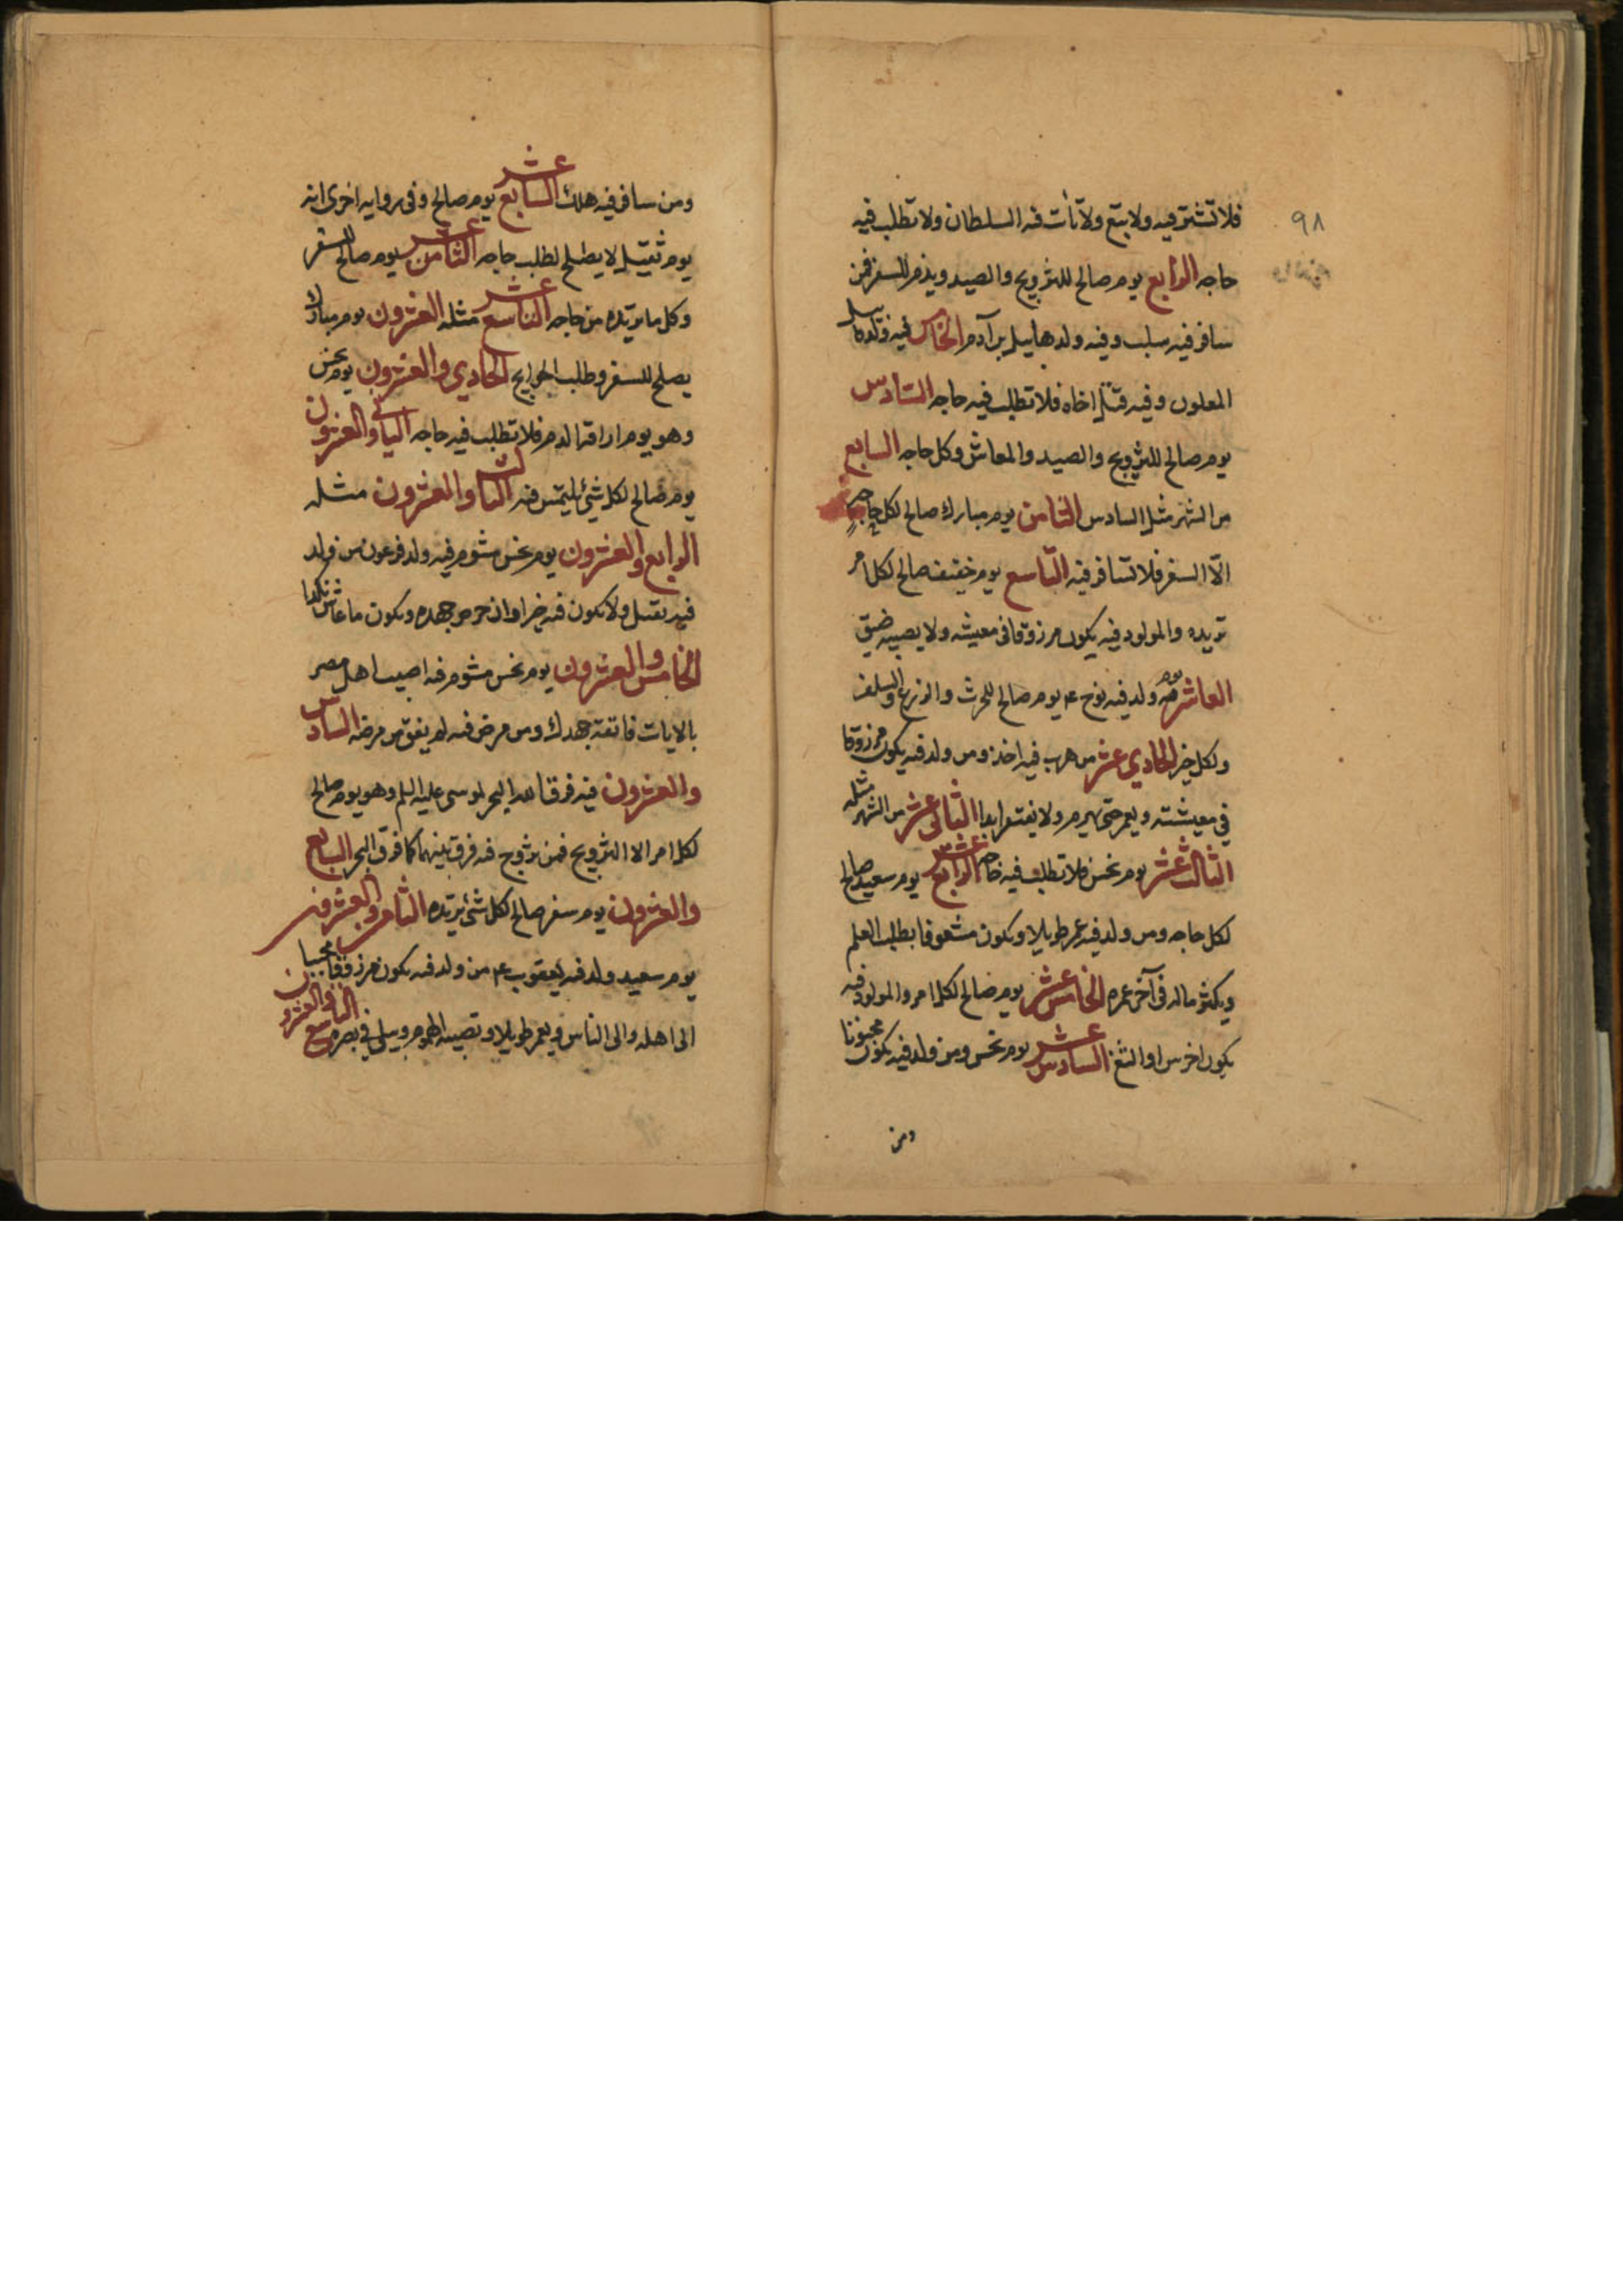 ٩٨
فلا تشتر فيه ولا تبتع ولا تأت فيه السلطان ولا تطلب فيه
حاجه الرابع يوم صالح للتزويج والصيد ويذم للسفر فمن
سافر فيه سلب وفيه ولد هابيل بن آدم الخامس فيه ولد قابيل
الملعون وفيه قتل اخاه فلا تطلب فيه حاجه السادس
يوم صالح للتزويج والصيد والمعاش وكل حاجه السابع
من الشهر مثل السادس الثامن يوم مبارك صالح لكل حاجه
الا السفر فلا تسافر فيه التاسع يوم خفيف صالح لكل امر
تريده والمولود فيه يكون مرزوقا في معيشه ولا يصيبه ضيق
العاشر يوم ولد فيه نوح ع يوم صالح للحرث والزرع والسلف
ولكل خير الحادي عشر من هرب فيه اخذ ومن ولد فيه يكون مرزوقا
في معيشته ويعمر حتى يهرم ولا يفتقر ابدا الثاني عشر من الشهر مثله
الثالث عشر يوم نحس فلا تطلب فيه حاجه الرابع عشر يوم سعيد صالح
لكل حاجه ومن ولد فيه عمر طويلا ويكون مشعوفا بطلب العلم
ويكثر ماله في آخر عمره الخامس عشر يوم صالح لكل امر والمولود فيه
يكون اخرس او الثغ السادس عشر يوم نحس ومن ولد فيه يكون مجنونا
ومن
ومن سافر فيه هلك السابع عشر يوم صالح وفي روايه اخرى انه
يوم ثقيل لا يصلح لطلب حاجه الثامن عشر يوم صالح للسفر
وكل ما تريده من حاجه التاسع عشر مثله العشرون يوم مبارك
يصلح للسفر وطلب الحوايج الحادي والعشرون يوم نحس
وهو يوم اراقة الدم فلا تطلب فيه حاجه الثاني والعشرون
يوم صالح لكل شئ يلتمس فيه الثالث والعشرون مثله
الرابع والعشرون يوم نحس مشوم فيه ولد فرعون من ولد
فيه يقتل ولا يكون فيه خيرا وان حرص جهده ويكون ما عاش نكدا
الخامس والعشرون يوم نحس مشوم فيه اصيب اهل مصر
بالايات فاتقه جهدك ومن مرض فيه لم يفق من مرضه السادس
والعشرون فيه فرق الله البحر لموسى عليه السلم وهو يوم صالح
لكل امر الا التزويج فمن تزوج فيه فرق بينهما كما فرق البحر السابع
والعشرون يوم سفر صالح لكل شئ تريده الثامن والعشرون
يوم سعيد ولد فيه يعقوب ع من ولد فيه يكون مرزوقا محببا
الى اهله والى الناس ويعمر طويلا وتصيبه الهموم ويبلى في بصره التاسع والعشرون